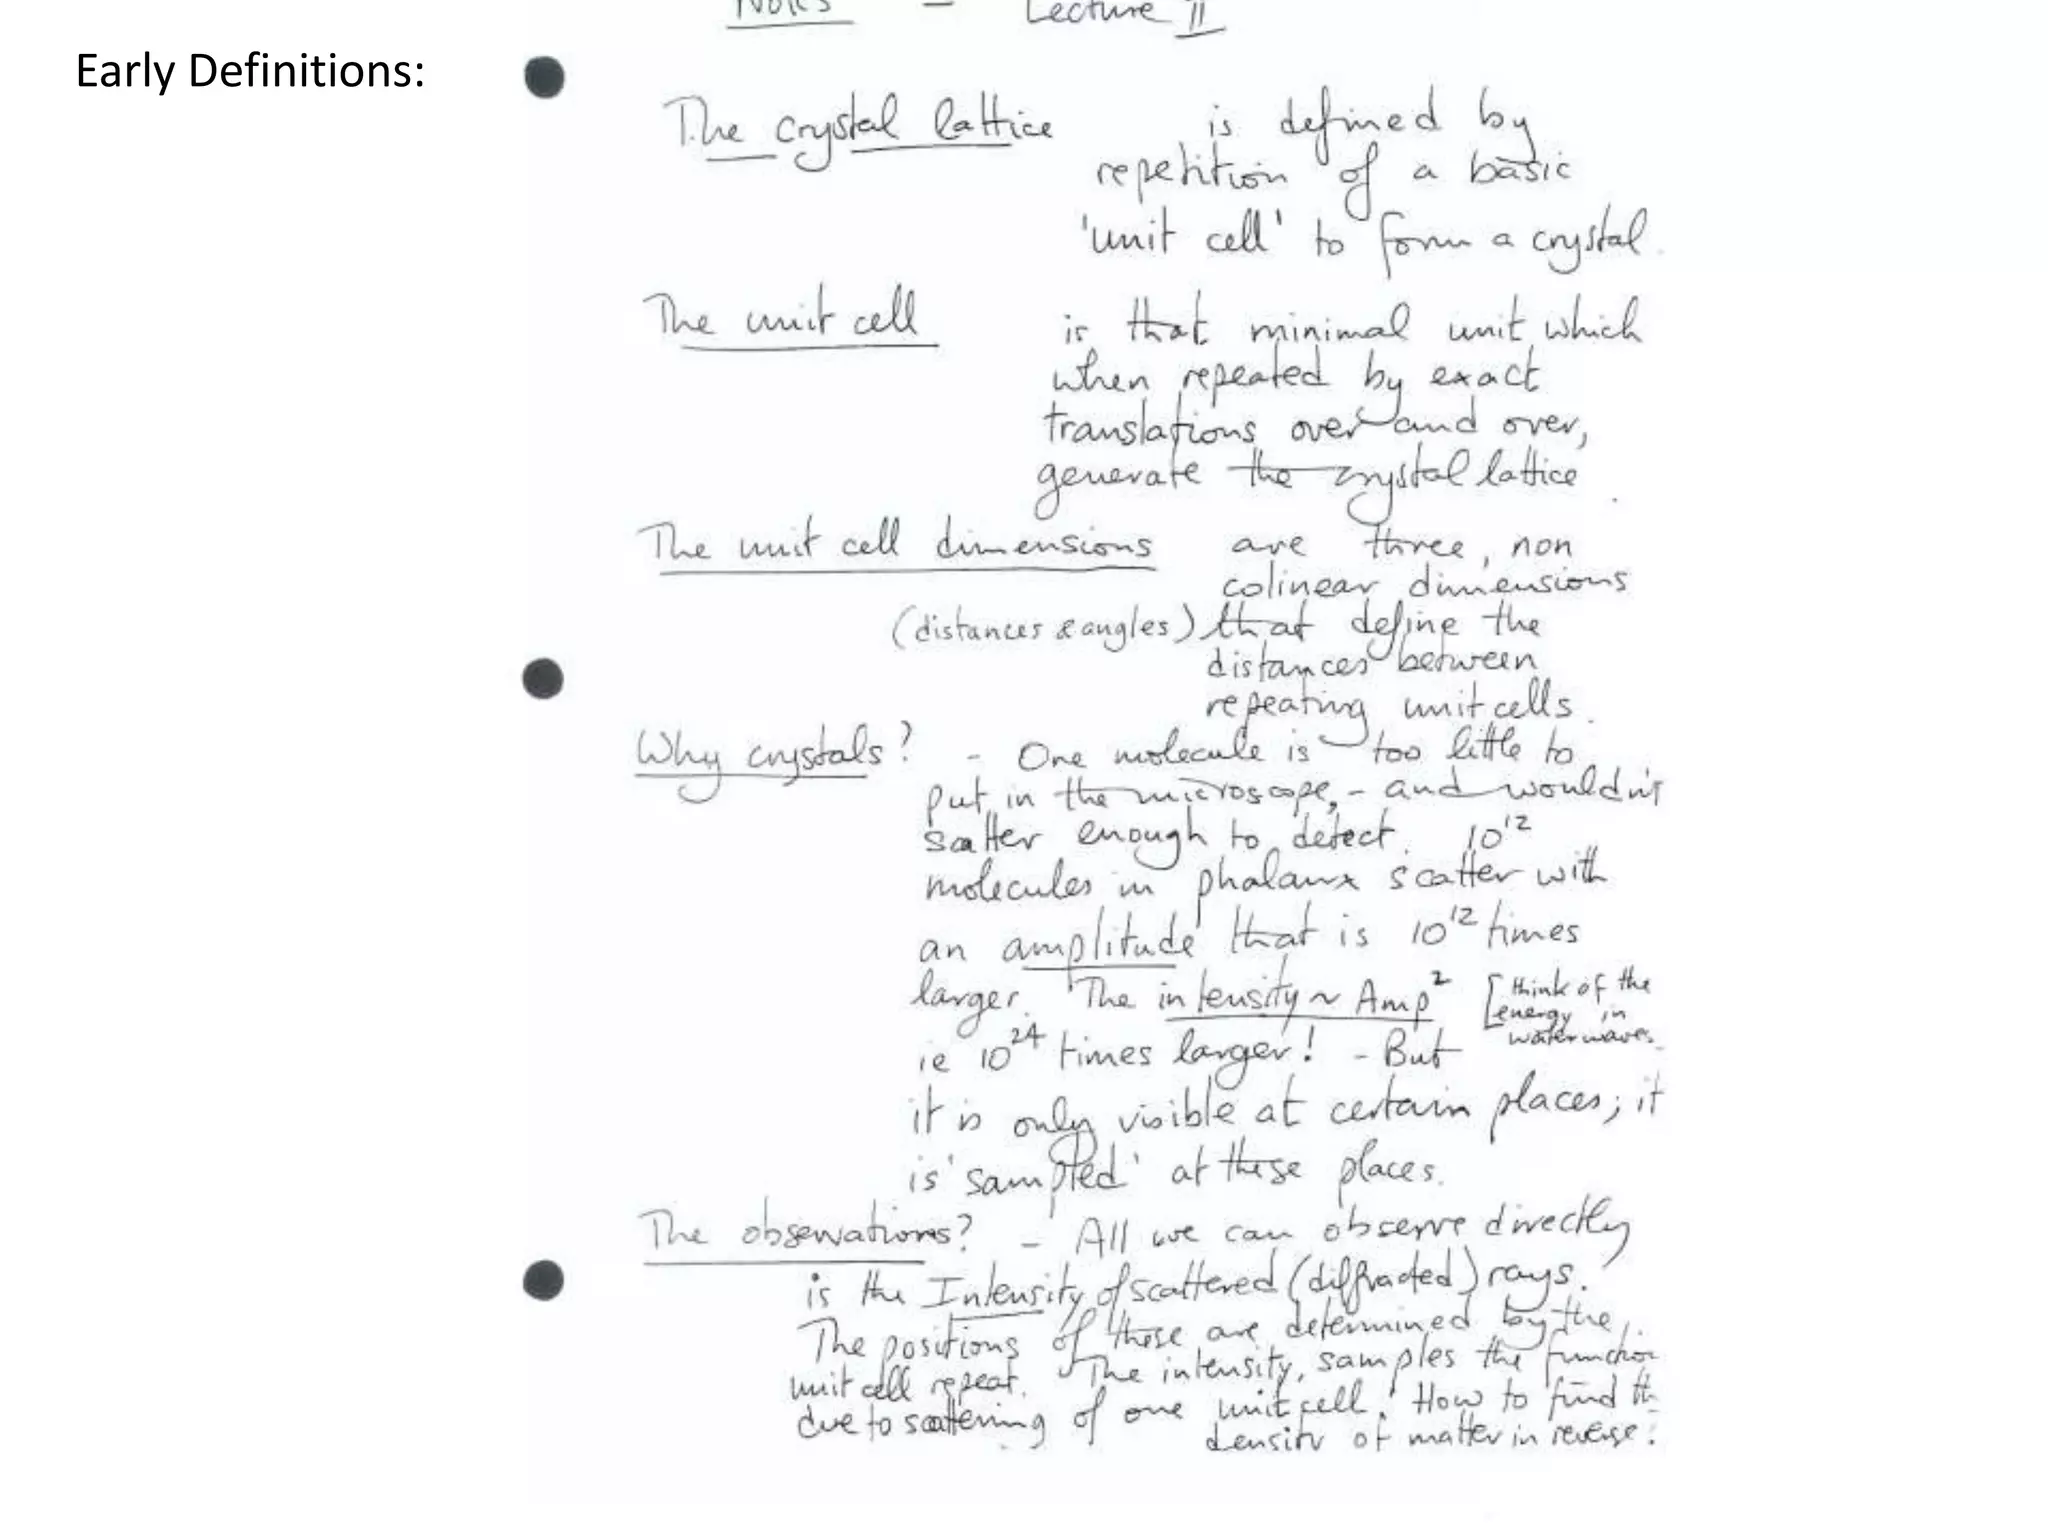 Notes - Lecture II
Early Definitions:
The crystal lattice is defined by
repetition of a basic
'unit cell' to form a crystal.
The unit cell is that minimal unit, which
when repeated by exact
translations over and over,
generate the crystal lattice.
The unit cell dimensions are three, non
colinear dimensions
(distances & angles) that define the
distances between
repeating unit cells.
Why crystals? - One molecule is too little to
put in the microscope, - and wouldn't
scatter enough to detect. 10¹²
molecules in phalanx scatter with
an amplitude that is 10¹² times
larger. The intensity ~ Amp² [think of the
energy in
water waves.
ie 10²⁴ times larger! - But
it is only visible at certain places; it
is 'sampled' at these places.
The observations? - All we can observe directly
is the Intensity of scattered (diffracted) rays.
The positions of these are determined by the
unit cell repeat. The intensity, samples the function
due to scattering of one unit cell. How to find th
density of matter in reverse: